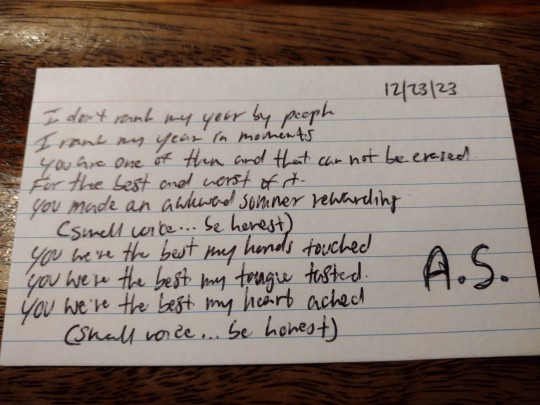 12/23/23
I don't rank my year by people
I rank my year in moments
You are one of them and that can not be erased
For the best and worst of it.
You made an awkward summer rewarding
(small voice... be honest)
You we're the best my hands touched
You we're the best my tongue tasted.
You we're the best my heart ached
(small voice... be honest)
A.S.